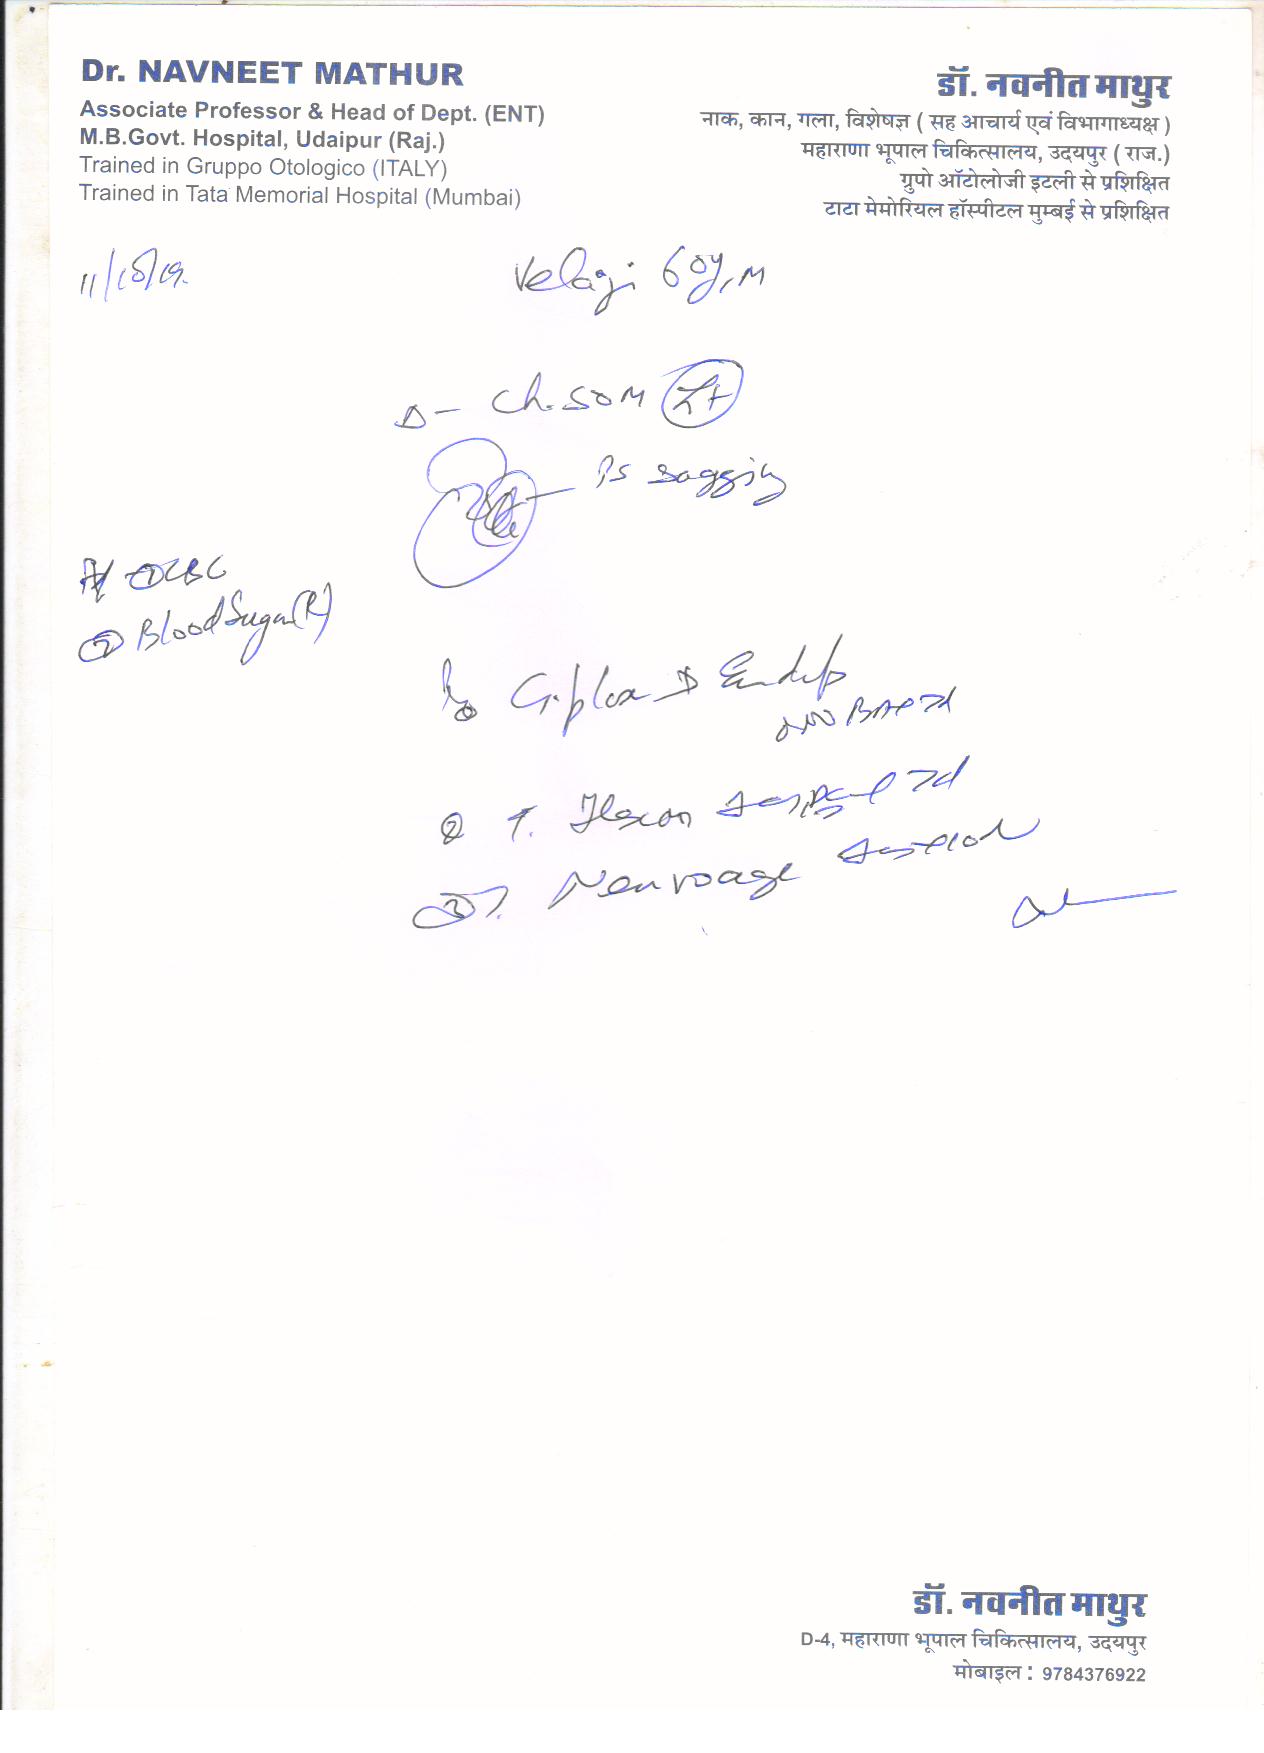 Dr. NAVNEET MATHUR
Associate Professor & Head of Dept. (ENT)
M.B.Govt. Hospital, Udaipur (Raj.)
Trained in Gruppo Otologico (ITALY)
Trained in Tata Memorial Hospital (Mumbai)
डॉ. नवनीत माथुर
नाक, कान, गला, विशेषज्ञ ( सह आचार्य एवं विभागाध्यक्ष )
महाराणा भूपाल चिकित्सालय, उदयपुर ( राज.)
ग्रुपो ऑटोलोजी इटली से प्रशिक्षित
टाटा मेमोरियल हॉस्पीटल मुम्बई से प्रशिक्षित
Velagi 60y, M
Ch. SOM Lt
Ps sagging
① CBC
② Blood Sugar (R)
Ciplox D
② T.
③ T.
डॉ. नवनीत माथुर
D-4, महाराणा भूपाल चिकित्सालय, उदयपुर
मोबाइल : 9784376922